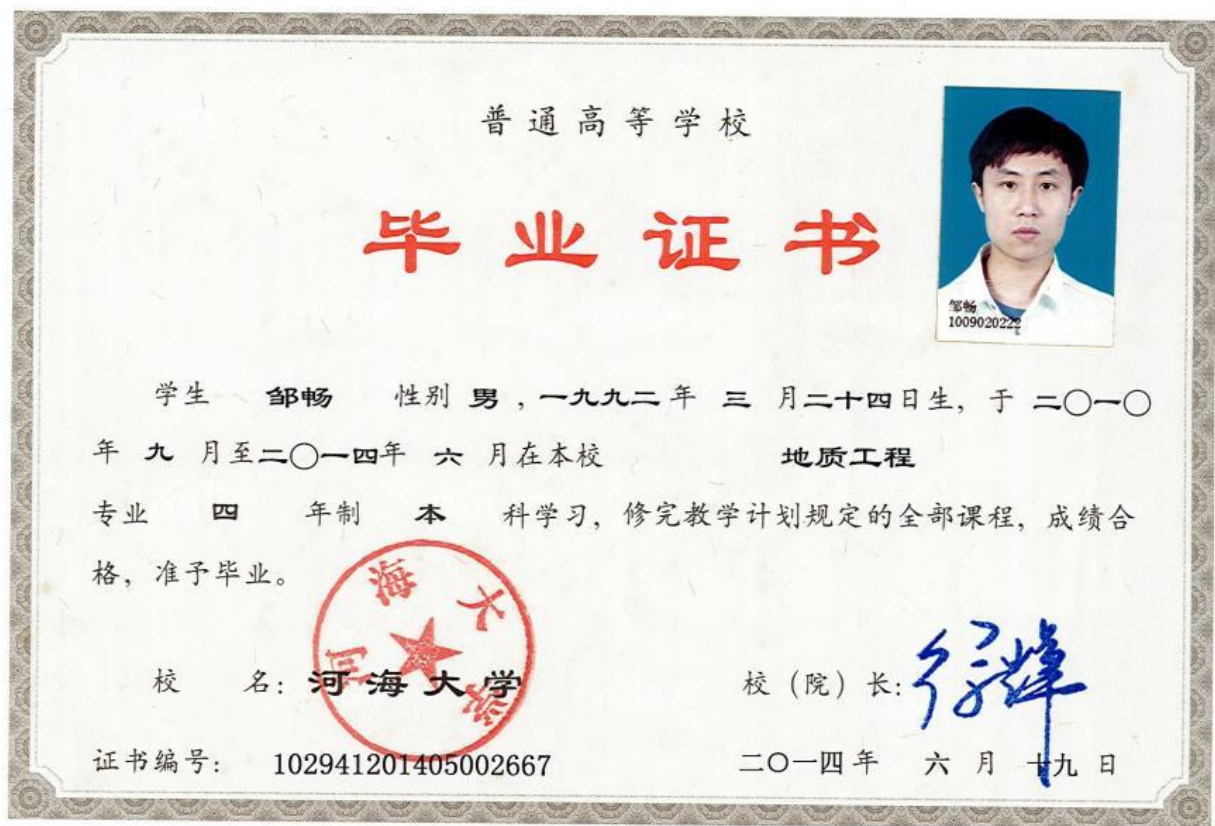 普通高等学校
毕业证书
邹畅
1009020222
学生 邹畅 性别 男，一九九二年 三 月二十四日生，于 二〇一〇
年 九 月至二〇一四年 六 月在本校 地质工程
专业 四 年制 本 科学习，修完教学计划规定的全部课程，成绩合
格，准予毕业。
河海大学
校 名：河海大学 校（院）长：
证书编号： 102941201405002667 二〇一四年 六 月 十九 日